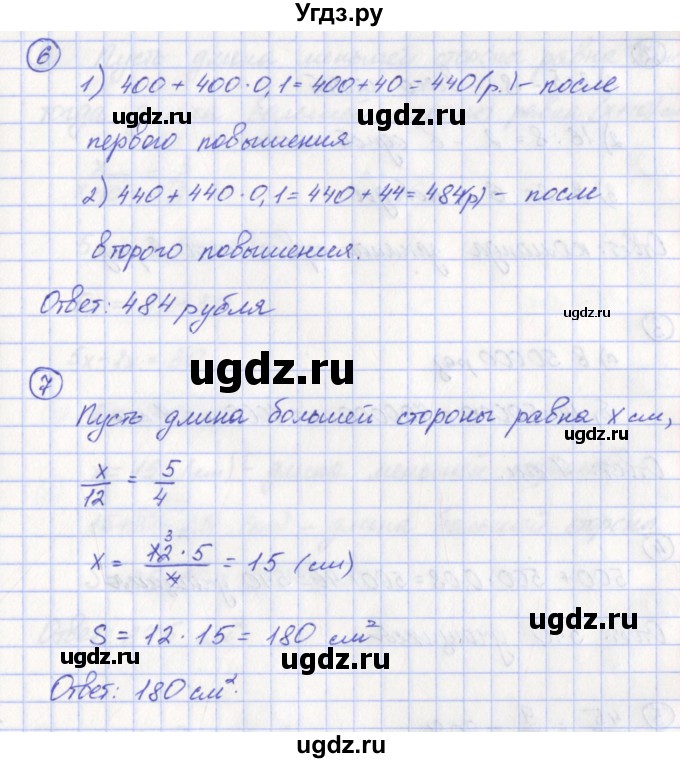 Угдз.ру
6
1) 400 + 400 · 0,1 = 400 + 40 = 440 (р.) – после
ugdz.ru ugdz.ru
первого повышения
2) 440 + 440 · 0,1 = 440 + 44 = 484(р) – после
ugdz.ru ugdz.ru
второго повышения.
Ответ: 484 рубля
ugdz.ru
ugdz.ru
7
Пусть длина большей стороны равна x см,
ugdz.ru
x/12 = 5/4
ugdz.ru
x = 12 · 5 / 4 = 15 (см)
3
ugdz.ru
S = 12 · 15 = 180 см²
ugdz.ru ugdz.ru
Ответ: 180 см².
ugdz.ru